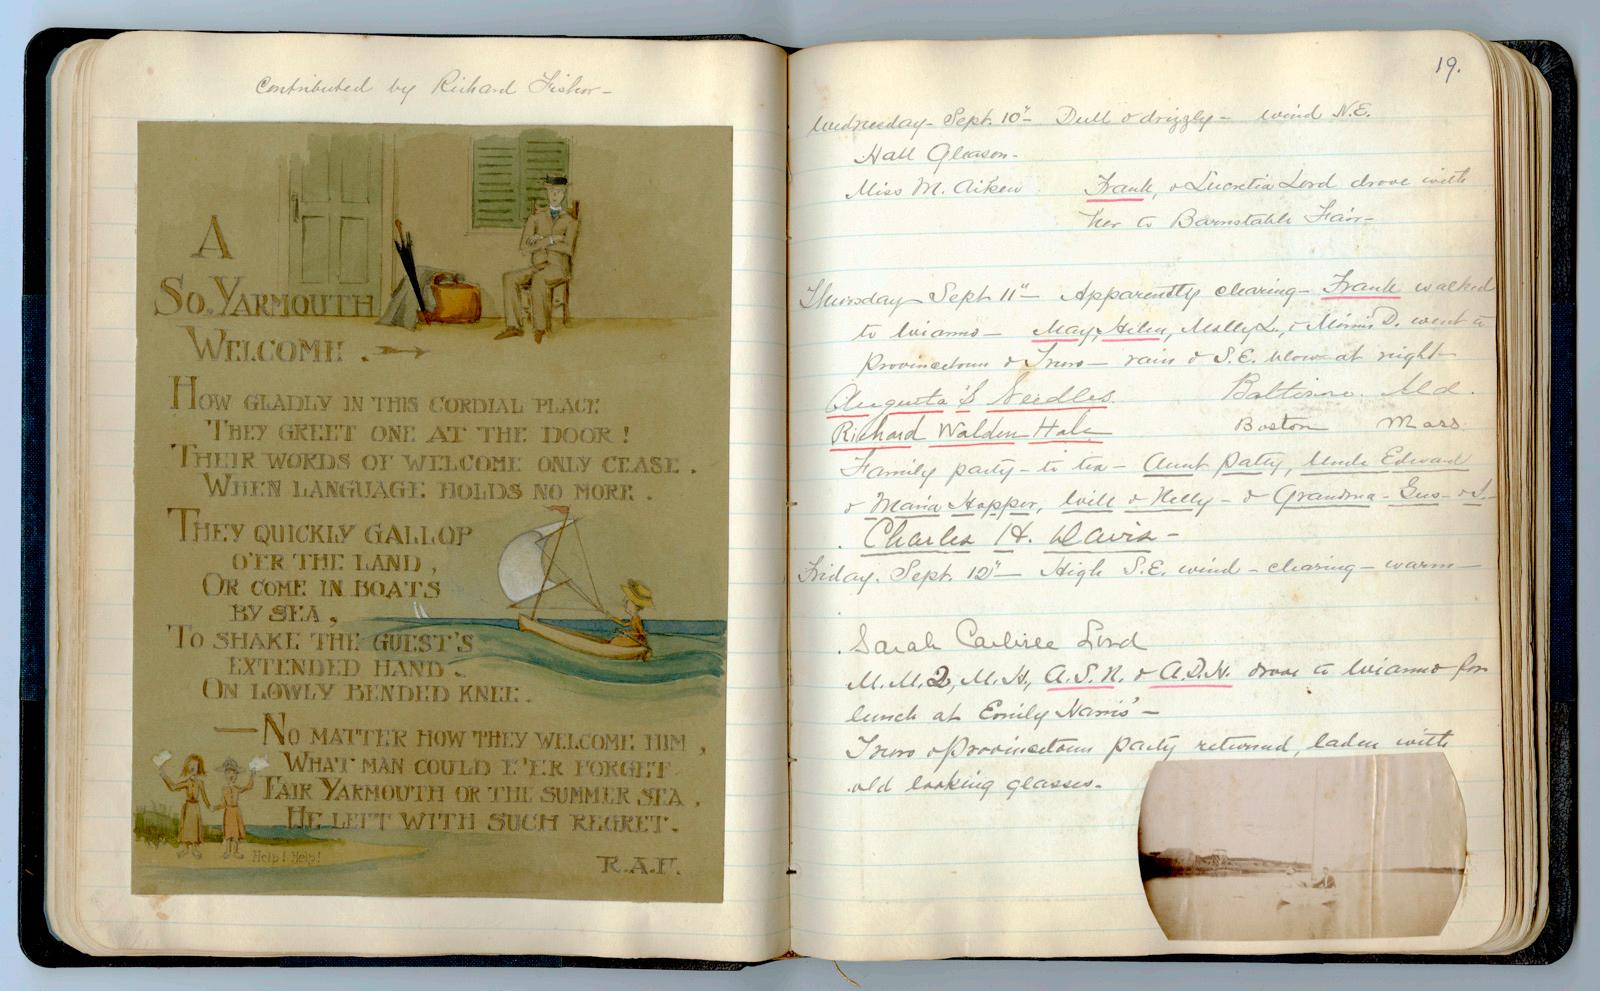 Contributed by Richard Fisher-
A
So. YARMOUTH
WELCOME.
HOW GLADLY IN THIS CORDIAL PLACE
THEY GREET ONE AT THE DOOR!
THEIR WORDS OF WELCOME ONLY CEASE.
WHEN LANGUAGE HOLDS NO MORE.
THEY QUICKLY GALLOP
O'ER THE LAND,
OR COME IN BOATS
BY SEA,
TO SHAKE THE GUEST'S
EXTENDED HAND.
ON LOWLY BENDED KNEE.
—NO MATTER HOW THEY WELCOME HIM,
WHAT MAN COULD E'ER FORGET
FAIR YARMOUTH OR THE SUMMER SEA,
HE LEFT WITH SUCH REGRET.
Help! Help!
R.A.F.
19.
Wednesday- Sept. 10"- Dull & drizzly- wind N.E.
Hall Gleason-
Miss M. Aiken Frank, & Lucretia Lord drove with
her to Barnstable Fair-
Thursday Sept 11"- Apparently clearing- Frank walked
to Wianno- May, Helen, Molly L., & Morris D. went to
Provincetown & Truro- rain & S.E. blow at night-
Augusta S Needles Baltimore. Md.
Richard Walden Hale Boston Mass.
Family party- to tea- Aunt Patty, Uncle Edward
& Maria Hopper, Will & Nelly- & Grandma- Gus-
Charles H. Davis-
Friday. Sept. 12"- High S.E. wind- clearing- warm-
Sarah Carlisle Lord
M.M.2, M.H., A.S.N. & A.D.H. drove to Wianno for
lunch at Emily Harris'-
Truro & Provincetown party returned, laden with
old looking glasses.